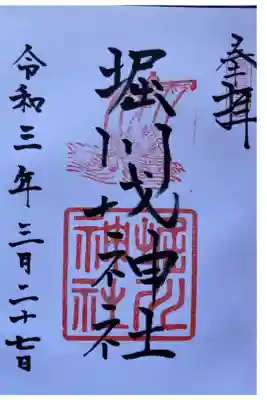 奉拝
堀川戎神社
堀川神社
令和三年三月二十七日